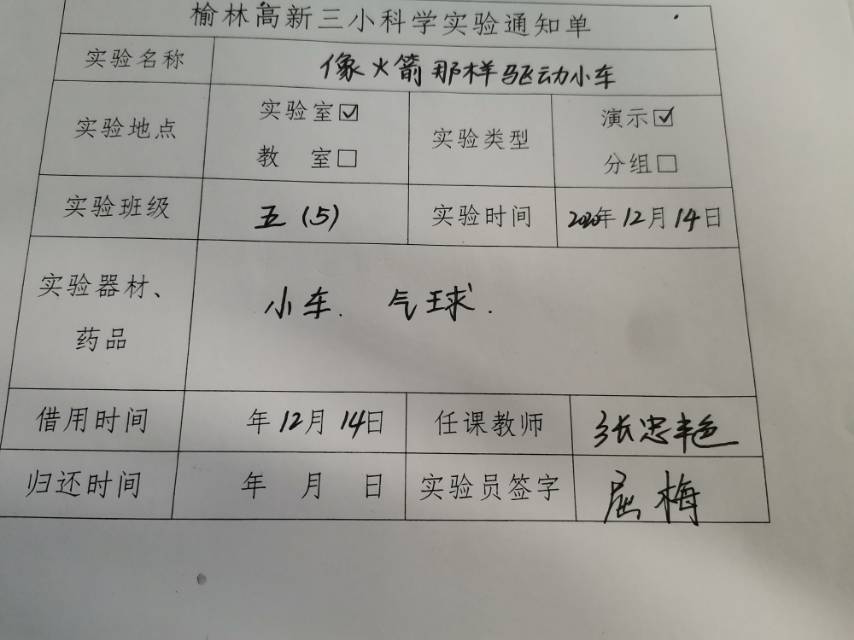 榆林高新三小科学实验通知单
实验名称 像火箭那样驱动小车
实验地点 实验室☑ 教 室□ 实验类型 演示☑ 分组□
实验班级 五(5) 实验时间 2020年12月14日
实验器材、药品 小车. 气球.
借用时间 年12月14日 任课教师 张忠艳
归还时间 年 月 日 实验员签字 屈梅